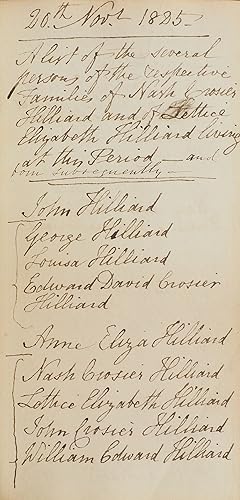 20th Novr 1825
A list of the several
persons of the respective
Families of Nash Crosier
Hilliard and of Lettice
Elizabeth Hilliard living
at this Period — and
born subsequently —
John Hilliard
George Hilliard
Louisa Hilliard
Edward David Crosier
Hilliard
Anne Eliza Hilliard
Nash Crosier Hilliard
Lettice Elizabeth Hilliard
John Crosier Hilliard
William Edward Hilliard